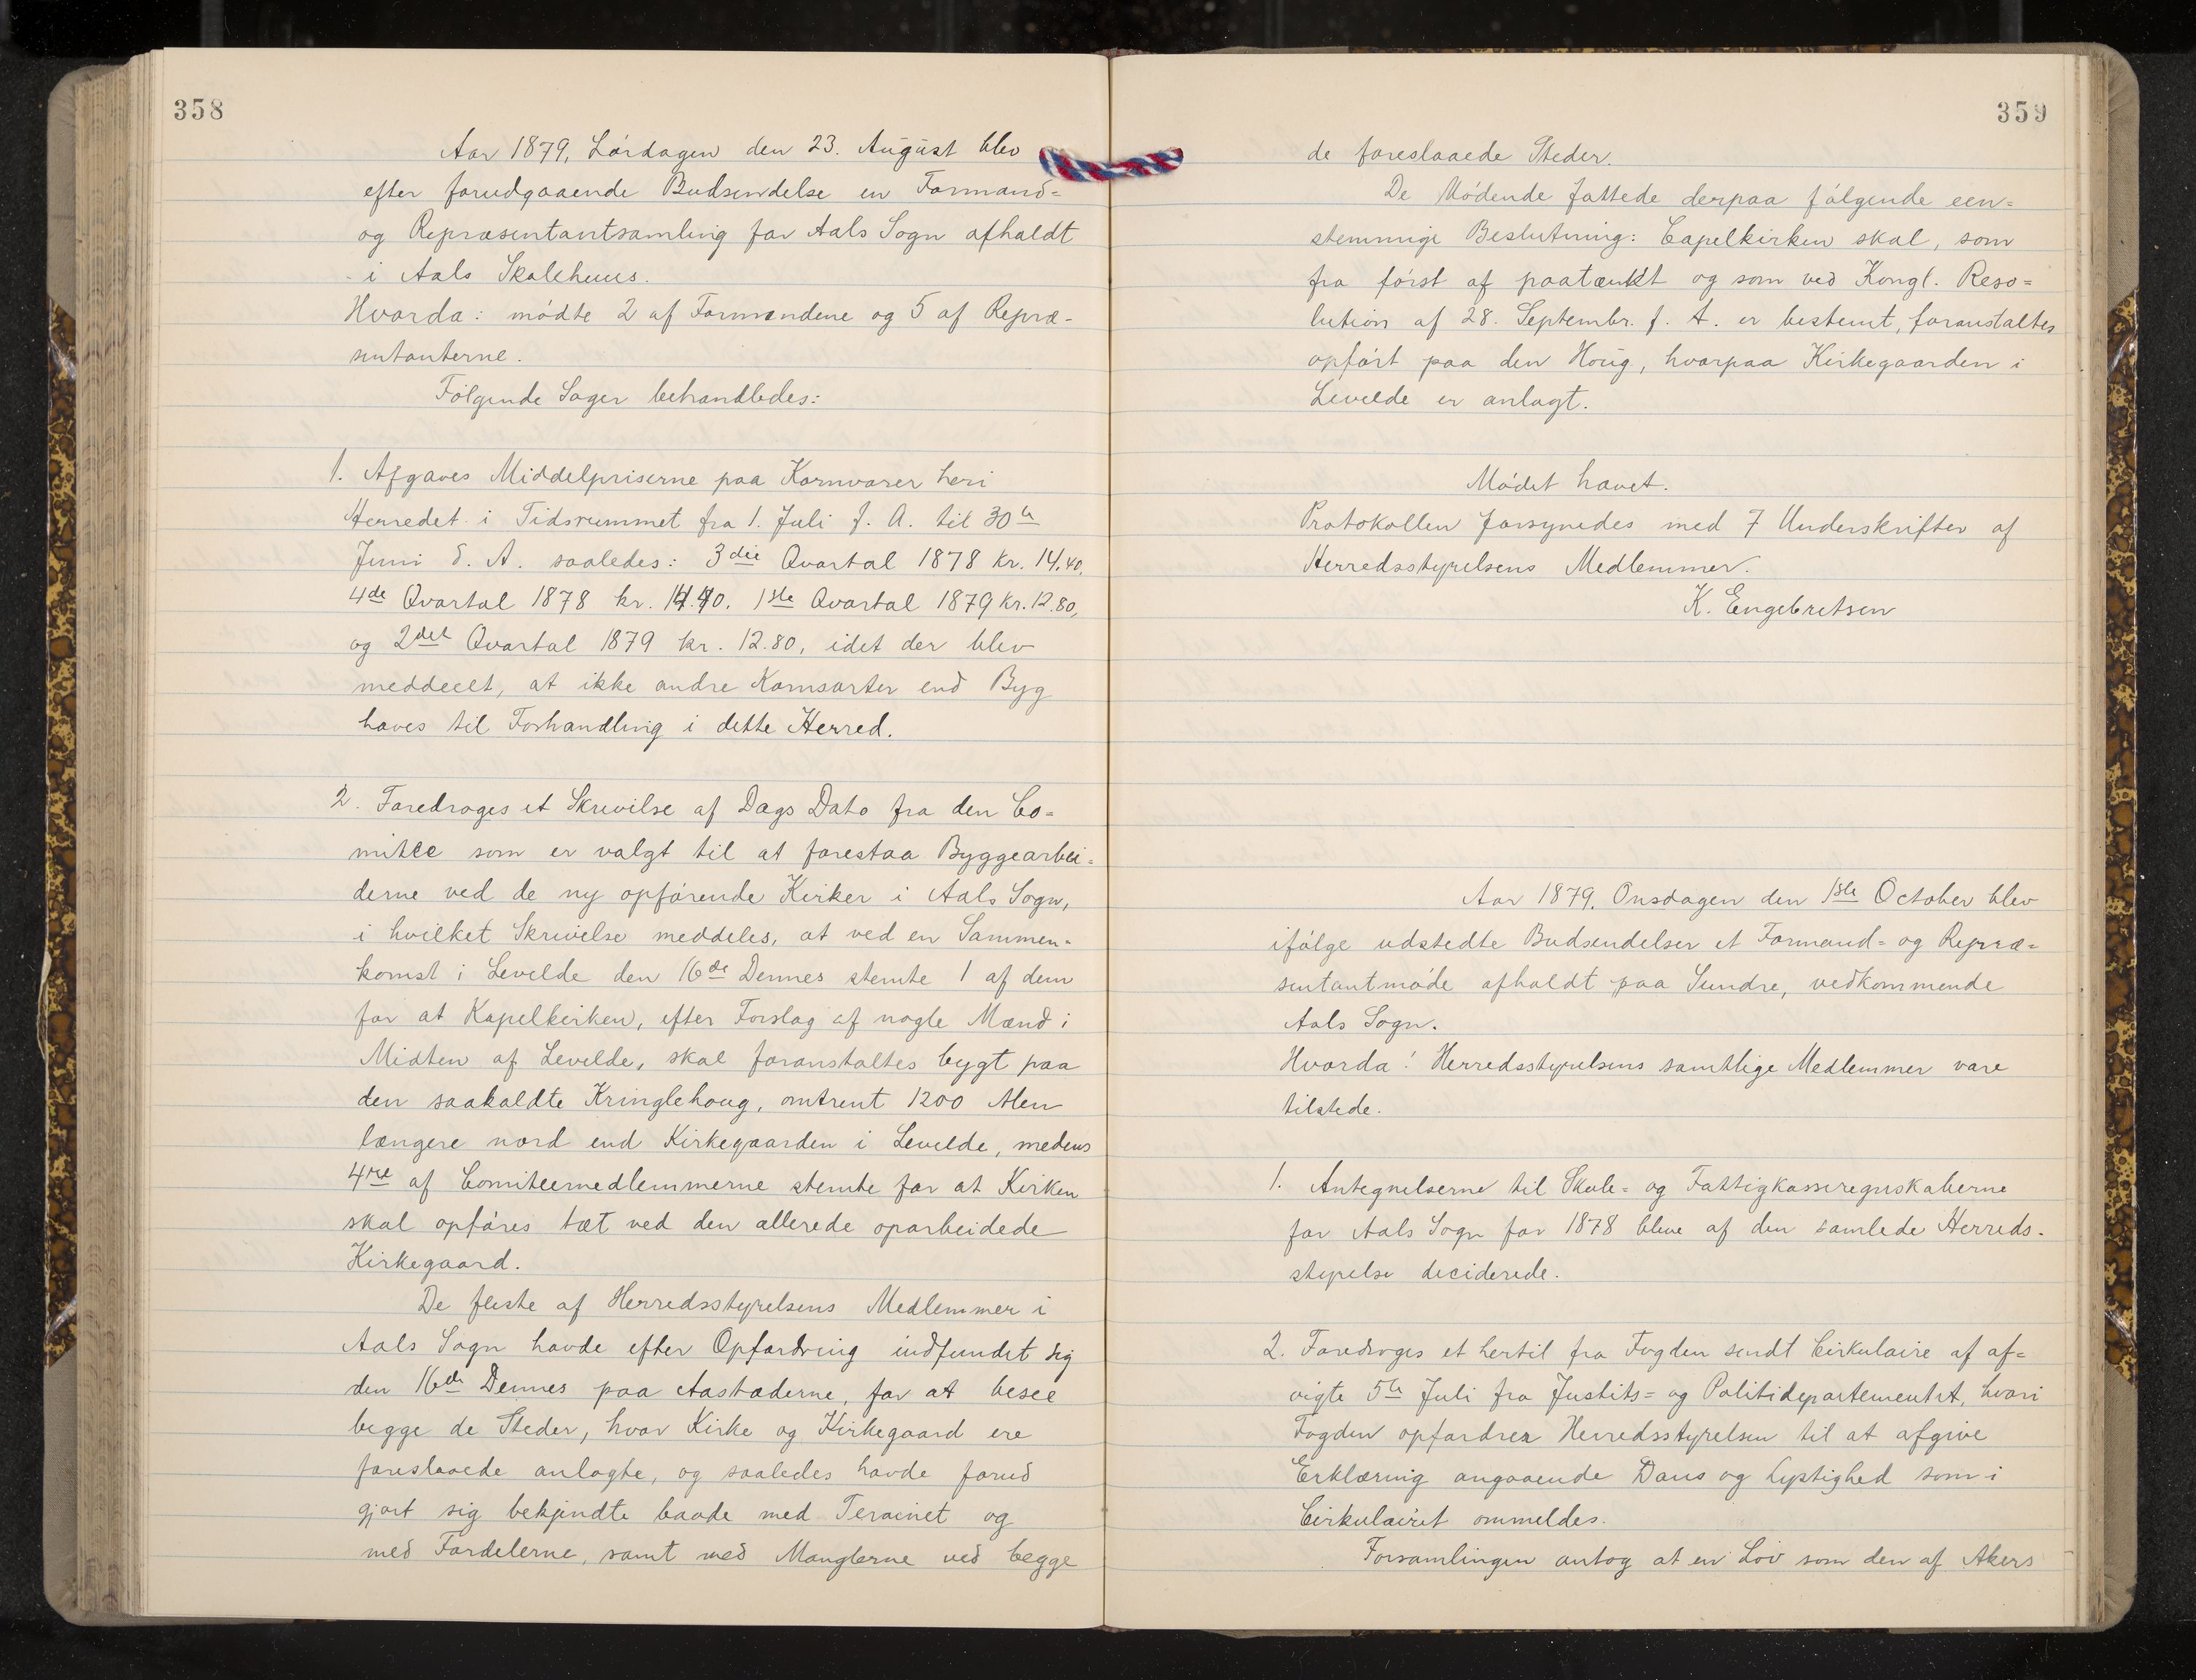 358
Aar 1879, Lórdagen den 23. August blev
efter forudgaaende Budsendelse en Formand=
og Repræsentantsamling for Aals Sogn afholdt
i Aals Skolehuus.
Hvorda: mødte 2 af Formændene og 5 af Repræ-
sentanterne.
Følgende Sager behandledes:
1. Afgaves Middelpriserne paa Kornvarer heri
Herredet i Tidsrummet fra 1. Juli f. A. til 30te
Juni d. A. saaledes: 3die Qvartal 1878 kr. 14.40,
4de Qvartal 1878 kr. 14.40. 1ste Qvartal 1879 kr. 12.80,
og 2det Qvartal 1879 kr. 12.80, idet der blev
meddeelt, at ikke andre Kornsorter end Byg
haves til Forhandling i dette Herred.
2. Foredroges et Skrivelse af Dags Dato fra den Co=
mitee som er valgt til at forestaa Byggearbei=
derne ved de ny opførende Kirker i Aals Sogn,
i hvilket Skrivelse meddeles, at ved en Sammen=
komst i Levelde den 16de Dennes stemte 1 af dem
for at Kapelkirken, efter Forslag af nogle Mænd i
Midten af Levelde, skal foranstaltes bygt paa
den saakaldte Kringlehoug, omtrent 1200 Alen
længere nord end Kirkegaarden i Levelde, medens
4re af Comiteemedlemmerne stemte for at Kirken
skal opføres tæt ved den allerede oparbeidede
Kirkegaard.
De fleste af Herredsstyrelsens Medlemmer i
Aals Sogn havde efter Opfordring indfundet sig
den 16de Dennes paa Aastæderne, for at besee
begge de Steder, hvor Kirke og Kirkegaard ere
foreslaaede anlagte, og saaledes havde forud
gjort sig bekjendte baade med Terainet og
med Fordelerne, samt med Manglerne ved begge
359
de foreslaaede Steder.
De Mødende fattede derpaa følgende een=
stemmige Beslutning: Capelkirken skal, som
fra først af paatænkt og som ved Kongl. Reso=
lution af 28. Septembr. f. A. er bestemt, foranstaltes
opført paa den Houg, hvorpaa Kirkegaarden i
Levelde er anlagt.
Mødet hævet.
Protokollen forsynedes med 7 Underskrifter af
Herredsstyrelsens Medlemmer.
K. Engebretsen
Aar 1879. Onsdagen den 1ste October blev
ifølge udstedte Budsendelser et Formand= og Repræ=
sentantmøde afholdt paa Sundre, vedkommende
Aals Sogn.
Hvorda! Herredsstyrelsens samtlige Medlemmer vare
tilstede.
1. Antegnelserne til Skole= og Fattigkasseregnskaberne
for Aals Sogn for 1878 bleve af den samlede Herreds-
styrelse deciderede.
2. Foredroges et hertil fra Fogden sendt Cirkulaire af af=
vigte 5te Juli fra Justits= og Politidepartementet, hvori
Fogden opfordrer Herredsstyrelsen til at afgive
Erklæring angaaende Dans og Lystighed som i
Cirkulairet ommeldes.
Forsamlingen antog at en Lov som den af Akers